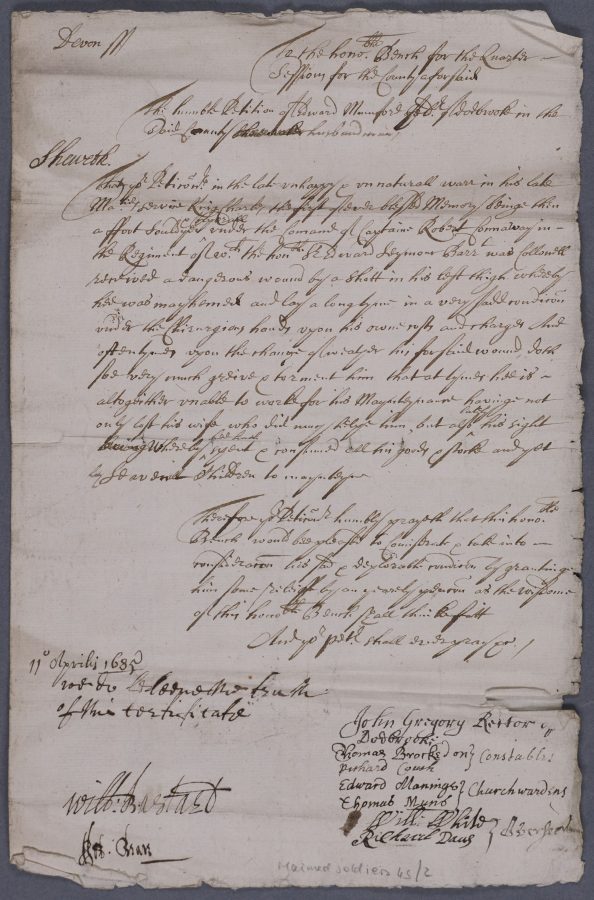 Devon ss
To the hono:ble Bench for the Quarter
Sessions for the County aforesaid
The humble Petition of Edward Mumford of Dodbrooke in the
said County husbandman
Sheweth
That yor Peticonr in the late unhappy & unnaturall warr in his late
Maties service King Charles the first of ever blessed Memory beinge then
a ffoot Souldger under the Comand of Captaine Robert in
the Regiment of the honble Sr Edward Seymour Barrt was Collonell
received a dangerous wound by a Shott in his left thigh whereby
hee was mayhemed and lay a long tyme in a very sadd condicon
under the Chirurgions hands upon his owne costs and charges And
oftentymes upon the change of weather his forsaid wound doth
soe very much greive & torment him that at tymes hee is
altogeither unable to worke for his Mayntenance havinge not
only lost his wife who did much helpe him, but also his sight
whereby hee hath spent & consumed all his goods & stocke and yet
Seaven Children to maynteyne
Therefore yor Peticonr humbly prayeth that this honoble
Bench would bee pleased to Comiserate & take into
consideracon his sad & deplorable condicon by grantinge
him some releiff by an yearely pencon as the wisdome
of this honoble Bench shall thinke fitt
And yor petr shall ever praye
11o Aprilis 1685
wee do beleeve the truth
of this certificate
John Gregory Rector of
Dodbrooke
Thomas Brockedon Constables
Richard Couch
Edward Maninge Churchwardens
Thomas
Will: White
Richard Overseers
Will: Bastard
Maimed soldiers 45/2